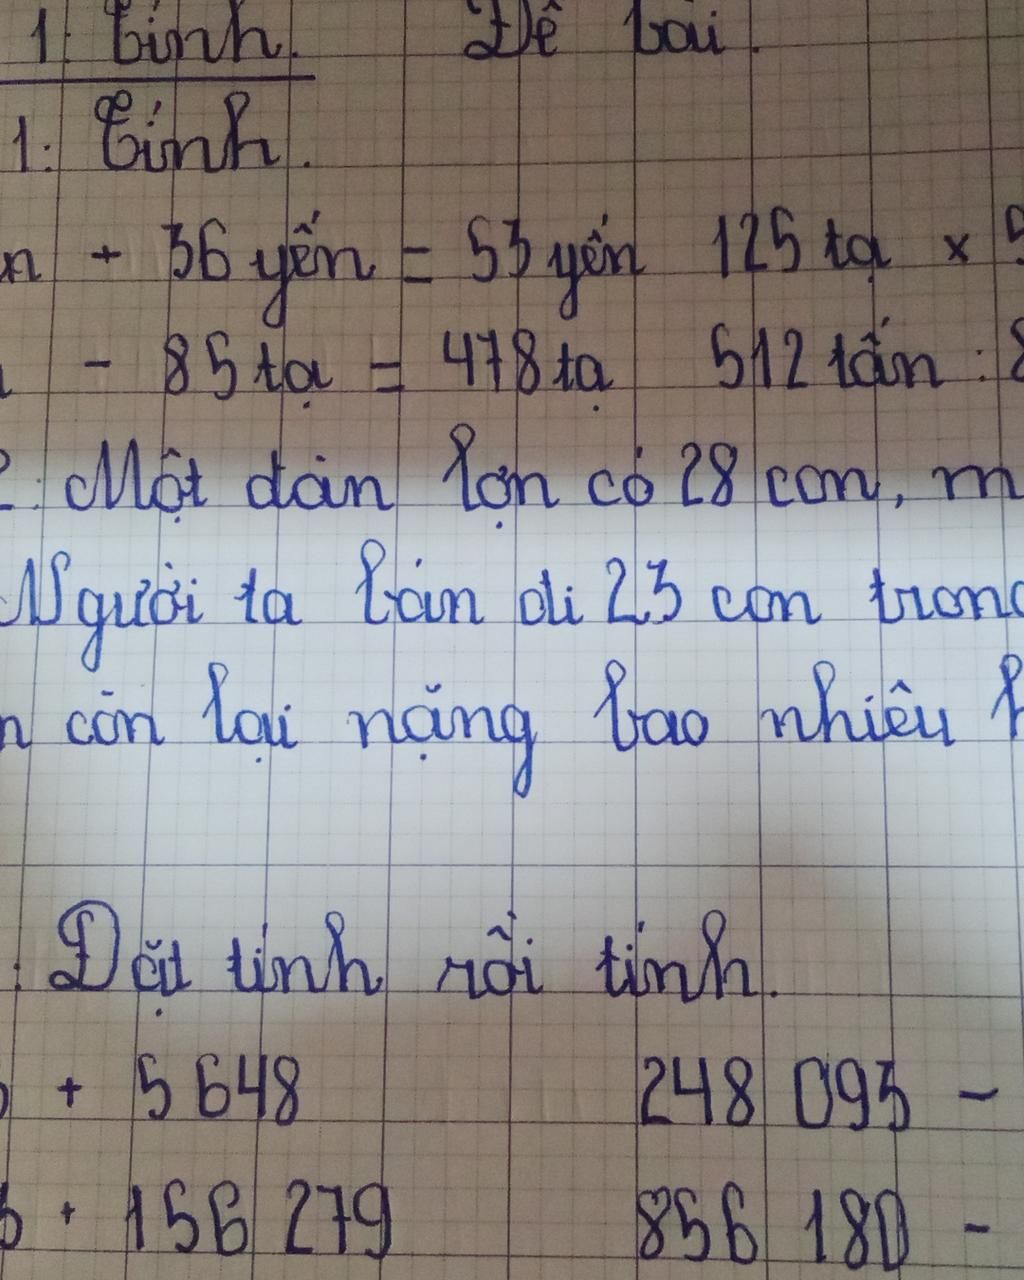 1: Tính. Đề bài.
1: Tính.
n + 36 yến = 53 yến 125 tạ x 5
- 85 tạ = 478 tạ 512 tấn : 8
2: Một đàn lợn có 28 con, m
Người ta bán đi 23 con trong
n còn lại nặng bao nhiêu k
: Đặt tính rồi tính.
+ 5 648 248 093 -
3 + 156 279 856 180 -